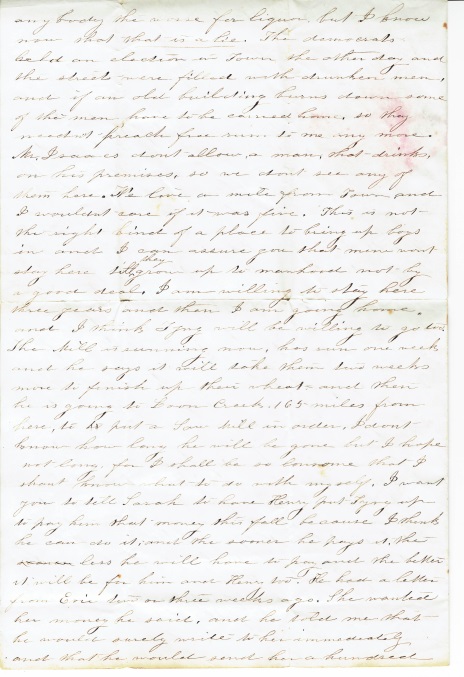 anybody the worse for liquor, but I know
now that that is a lie. The democrats
held an election in Town the other day and
the streets were filled with drunken men,
and if an old building burns down some
of the men have to be carried home, so they
needn't preach free rum to me any more.
Mr. Isaacs dont allow a man, that drinks,
on his premises, so we dont see any of
them here. We live a mile from Town and
I wouldnt care if it was five. This is not
the right kind of a place to bring up boys
in and I can assure you that mine wont
stay here till they grow up to manhood not by
a good deal. I am willing to stay here
three years and then I am going home.
and I think will be willing to go too.
The Mill is running now, has run one week
and he says it will take them two weeks
more to finish up their wheat and then
he is going to Creek, 165 miles from
here, to put a Saw Mill in order. I dont
know how long he will be gone but I hope
not long, for I shall be so lonesome that I
shant know what to do with myself. I want
you to tell Sarah to have Henry put up
to pay him that money this fall because I think
he can do it, and the sooner he pays it, the
less he will have to pay and the better
it will be for him and Henry too. He had a letter
from two or three weeks ago. She wanted
her money he said, and he told me that
he would surely write to her immediately
and that he would send her a hundred